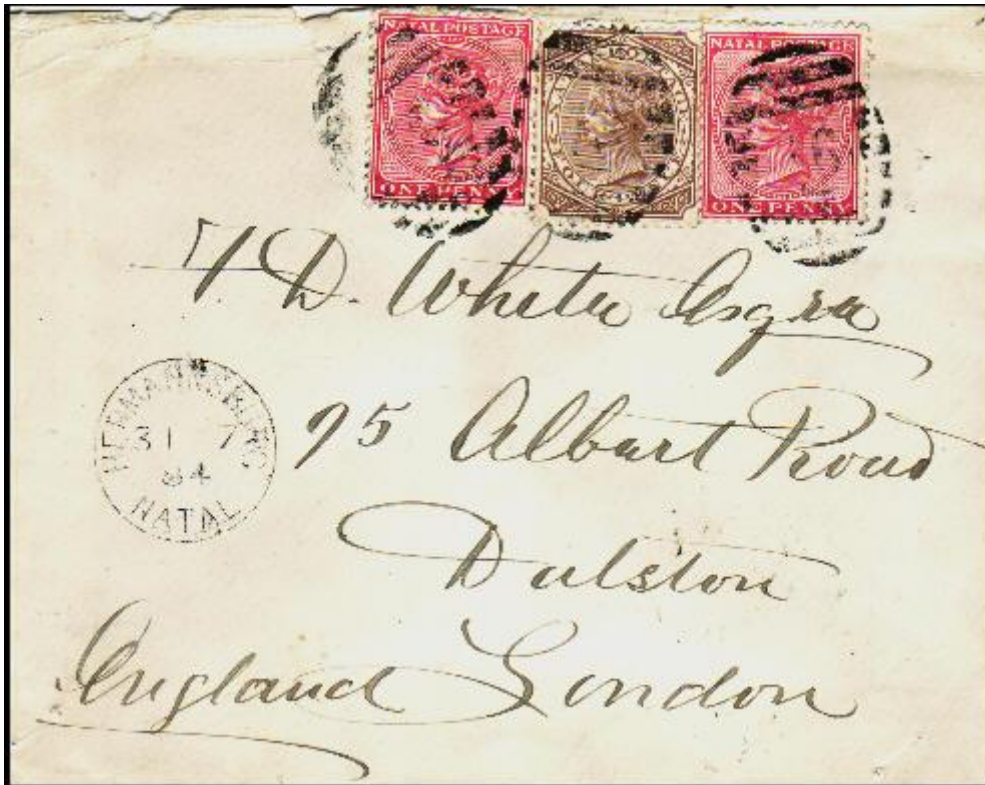 NATAL POSTAGE
ONE PENNY
NATAL POSTAGE
ONE PENNY
D. White Esqre
95 Albert Road
Dalston
England London
HERMANNSBURG
31 7
84
NATAL